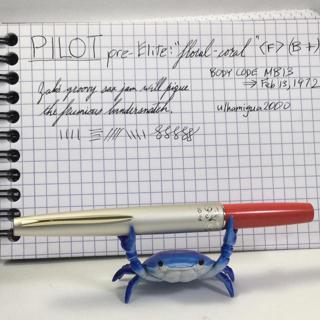 PILOT pre-Elite: "floral-coral" <F> (B+)
BODY CODE MB13
⇒ Feb 13, 1972
Jake groovy san jam will pique
the frumious bandersnatch.
ulhamigua2000